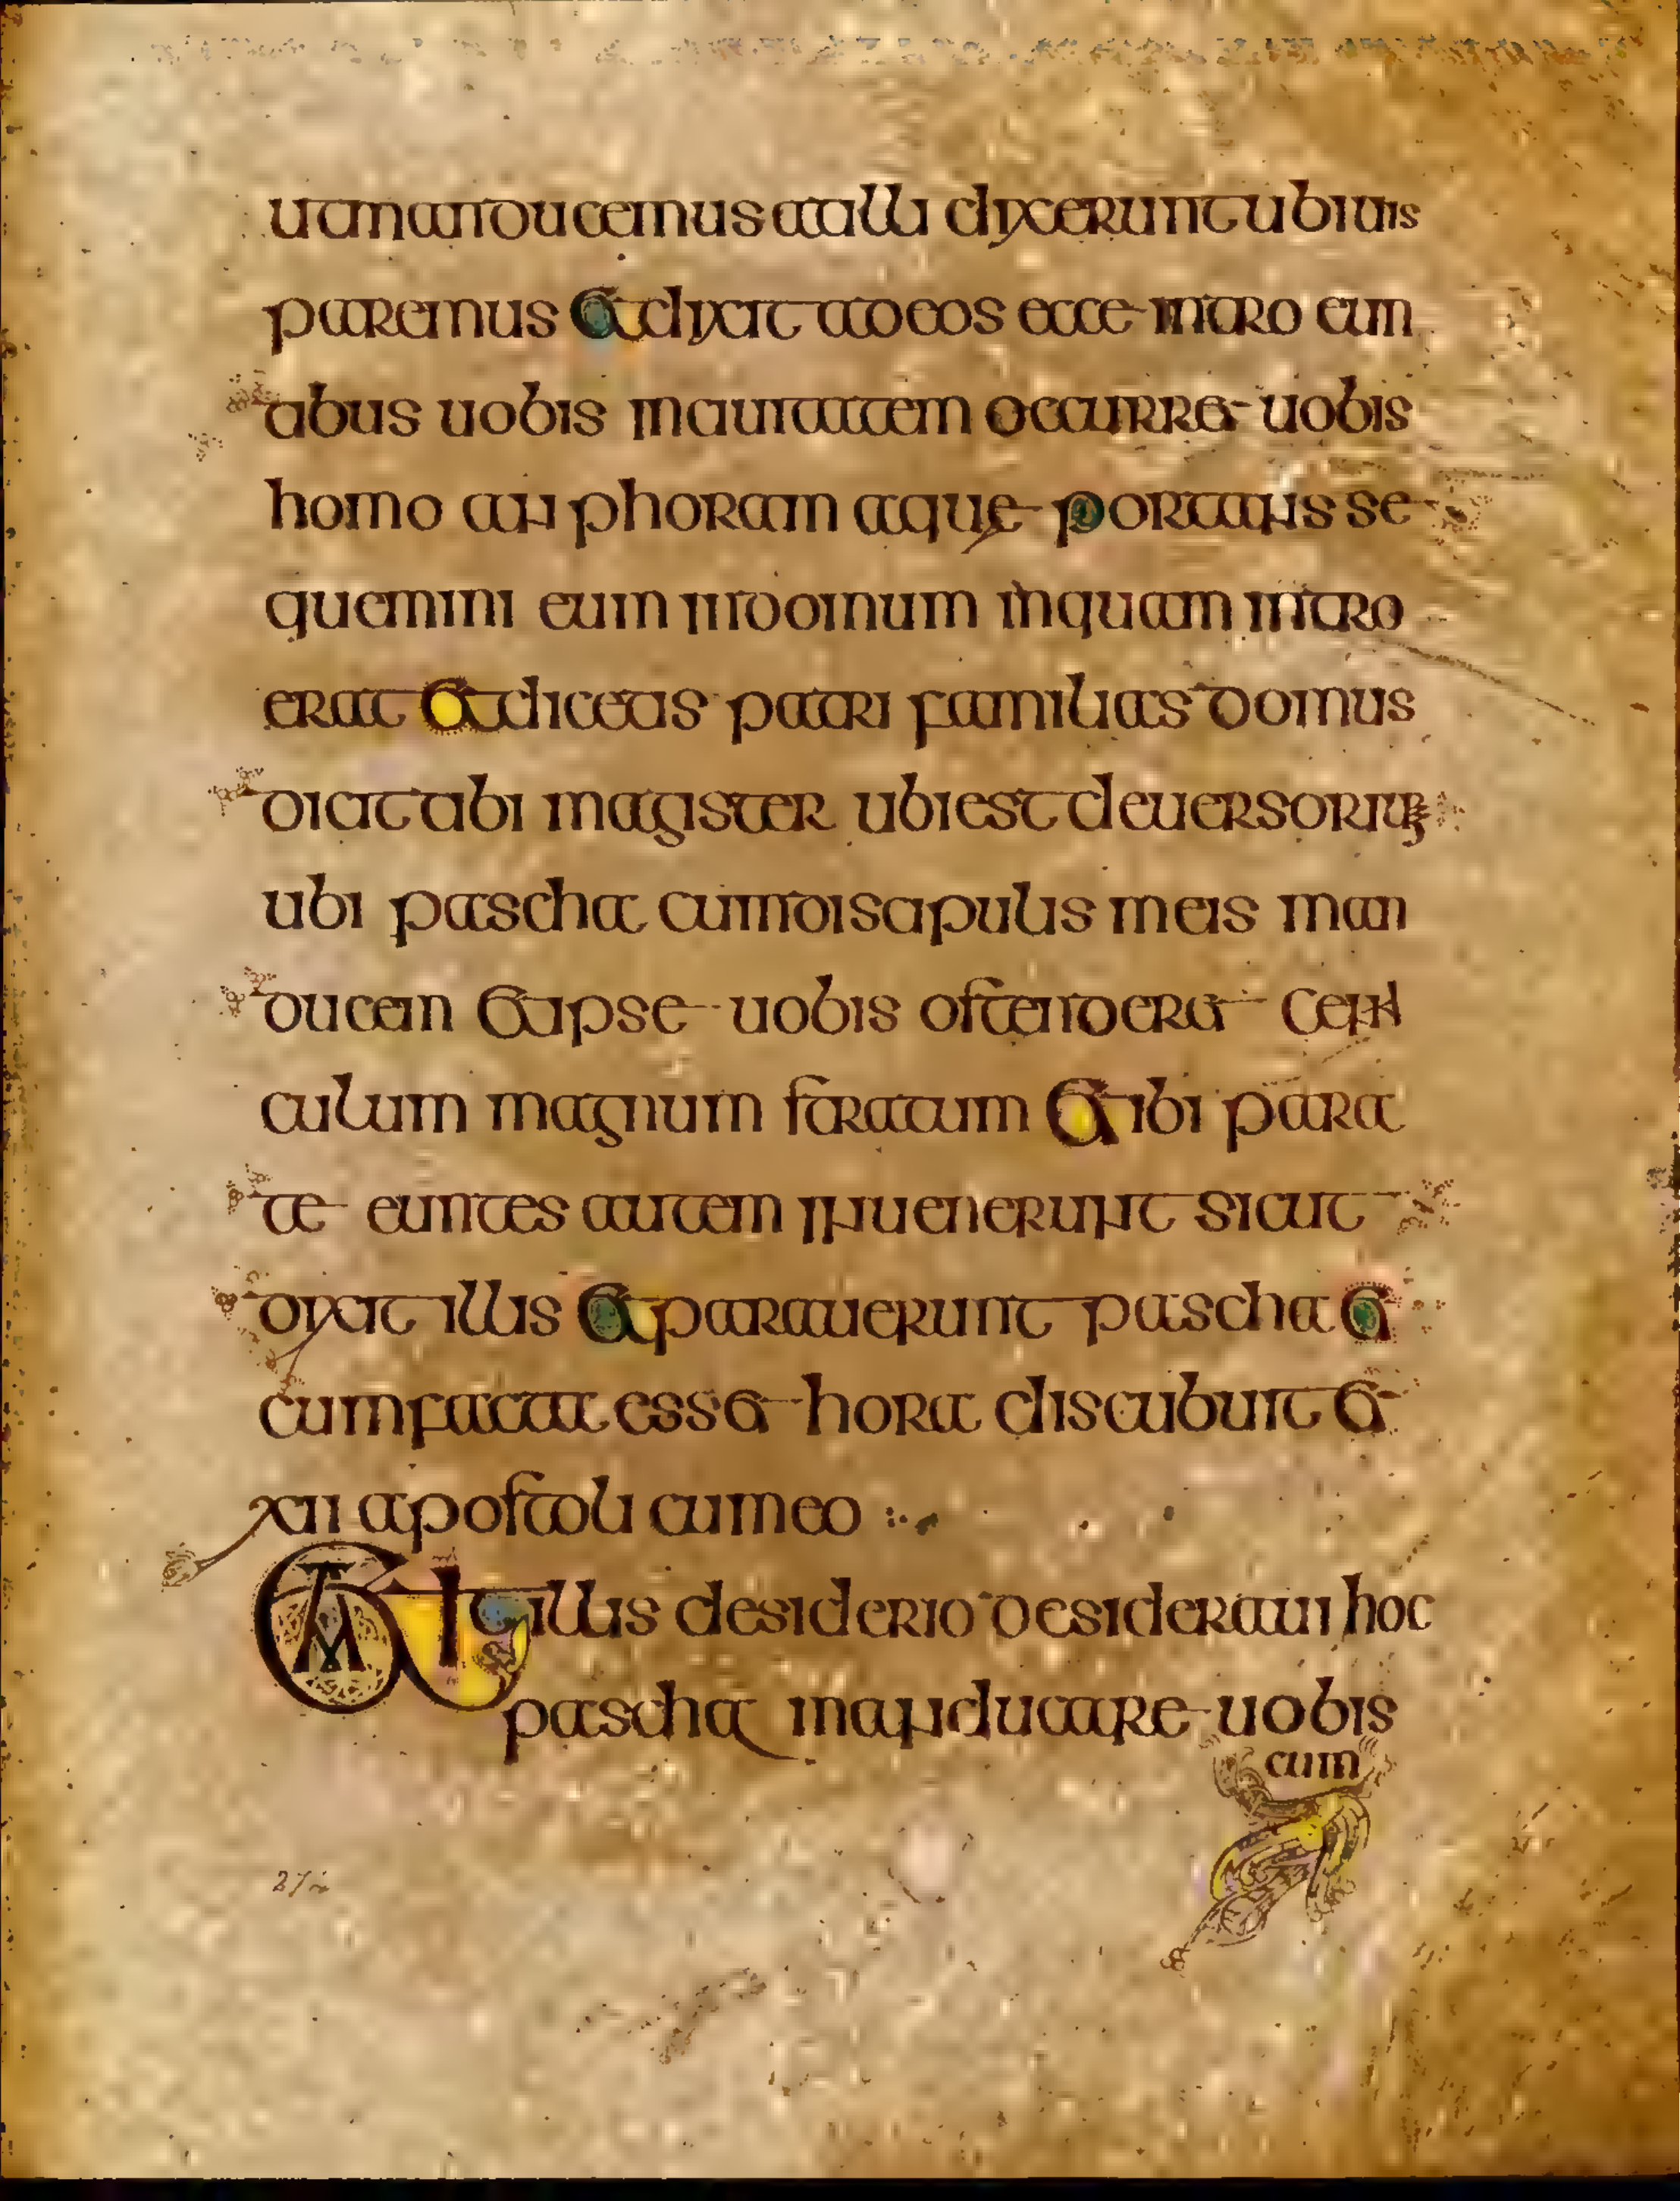 ut manducemus at illi dixerunt ubi uis
paremus et dixit ad eos ecce intro eun
tibus uobis in ciuitatem occurret uobis
homo anphoram aque portans se
quemini eum in domum in quam intro
erat et dicetis patri familias domus
dicit tibi magister ubi est deuersorium
ubi pascha cum discipulis meis man
ducem et ipse uobis ostendet cena
culum magnum stratum et ibi para
te euntes autem inuenerunt sicut
dixit illis et parauerunt pascha et
cum facta esset hora discubuit et
xii apostoli cum eo
Et ait illis desiderio desideraui hoc
pascha manducare uobis
cum